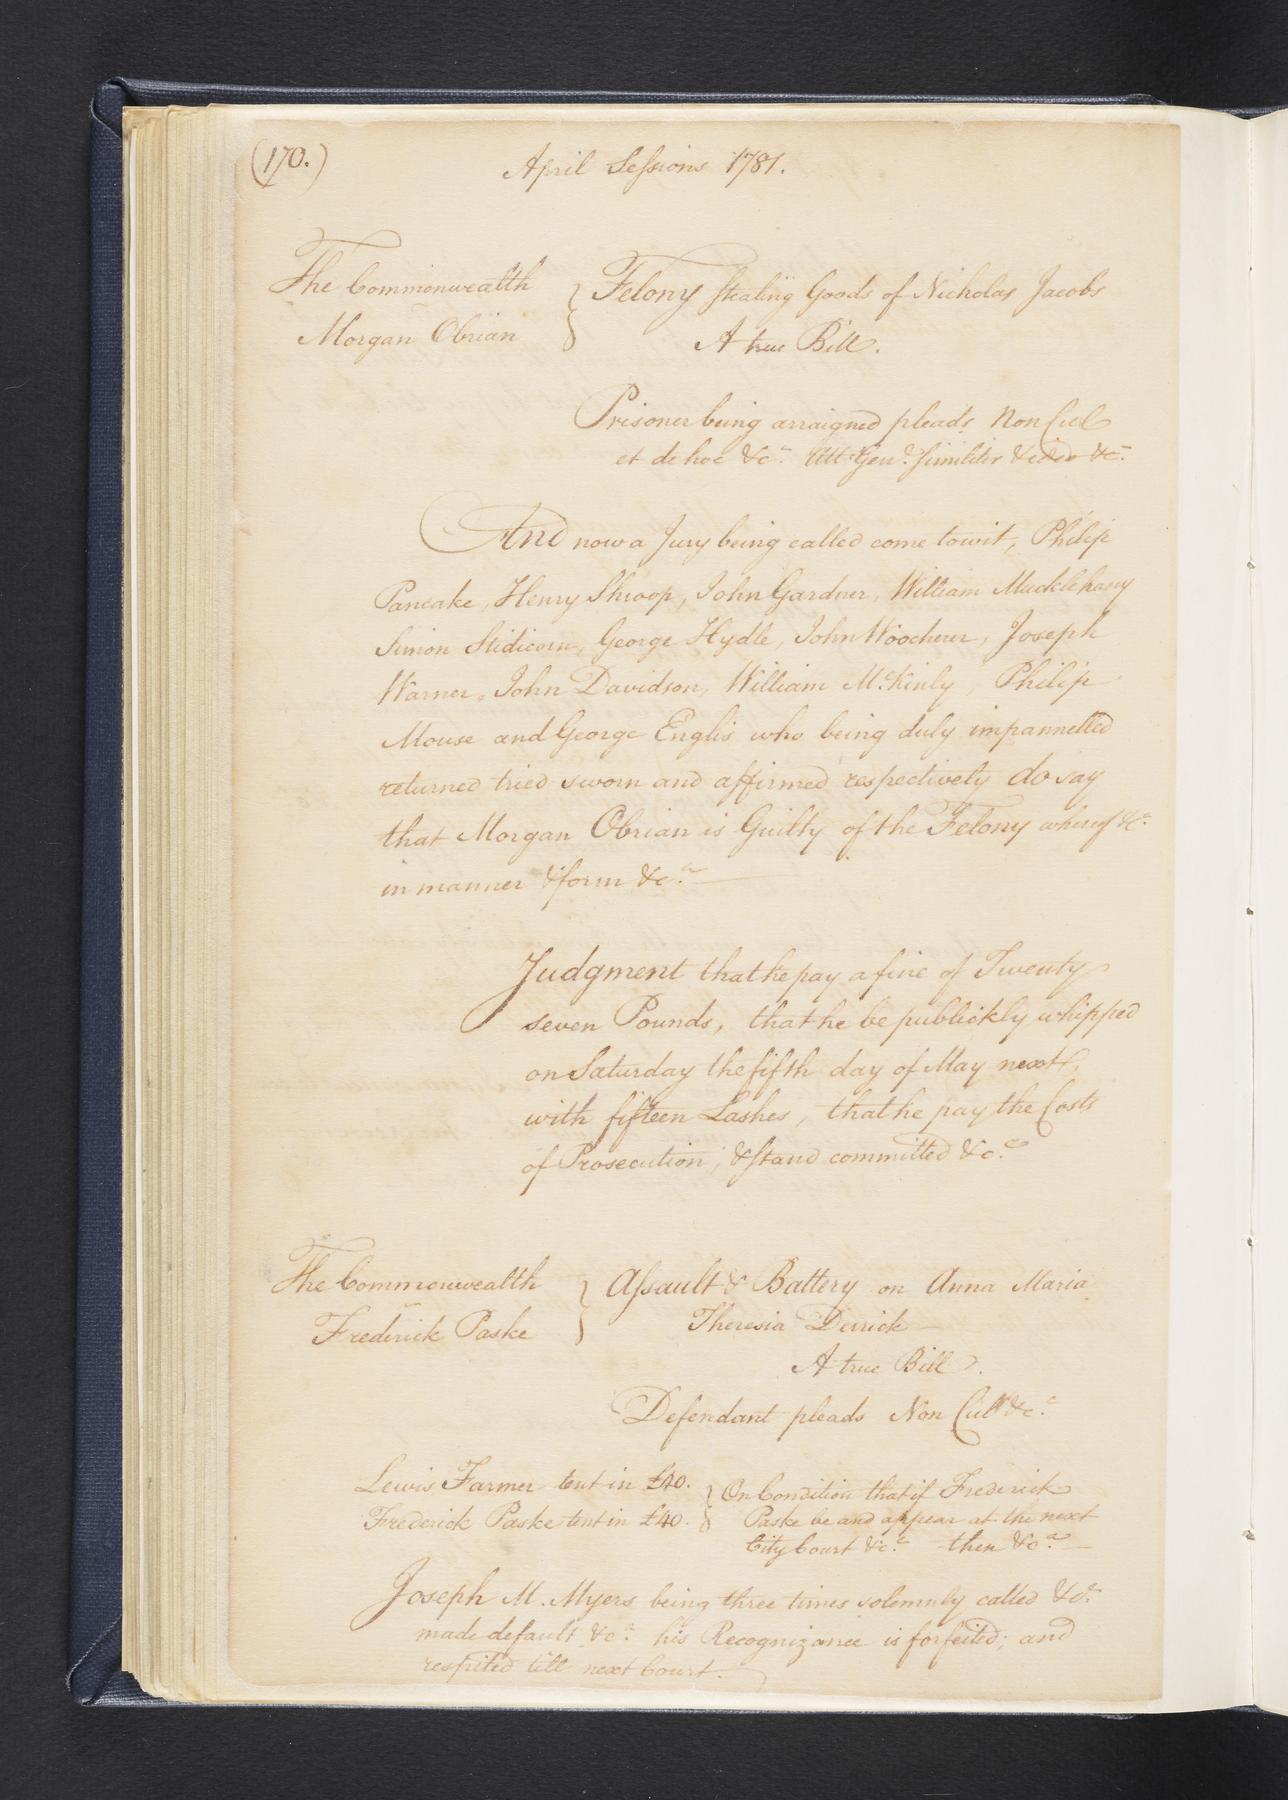 (170.)
April Sessions 1781.
The Commonwealth
Morgan Obrian
Felony stealing Goods of Nicholas Jacobs
A true Bill.
Prisoner being arraigned pleads Non Cul
et de hoc &c.ᵃ Att Gen.ˡ similiter & ideo &c.
And now a Jury being called come towit, Philip
Pancake, Henry Shroop, John Gardner, William Mucklehany
Simon Stidicorn, George Hydle, John Woocherer, Joseph
Warner, John Davidson, William McKinly, Philip
Mouse and George Englis who being duly impannelled
returned tried sworn and affirmed respectively do say
that Morgan Obrian is Guilty of the Felony whereof &c.ᵃ
in manner & form &c.ᵃ
Judgment that he pay a fine of Twenty
seven Pounds, that he be publickly whipped
on Saturday the fifth day of May next,
with fifteen Lashes, that he pay the Costs
of Prosecution, & stand committed &c.ᵃ
The Commonwealth
Frederick Paske
Assault & Battery on Anna Maria
Theresia Derrick
A true Bill.
Defendant pleads Non Cul &c.ᵃ
Lewis Farmer tent in £40.
Frederick Paske tent in £40.
On Condition that if Frederick
Paske be and appear at the next
City Court &c.ᵃ then &c.ᵃ
Joseph M. Myers being three times solemnly called &c.ᵃ
made default &c.ᵃ his Recognizance is forfeited; and
respited till next Court.